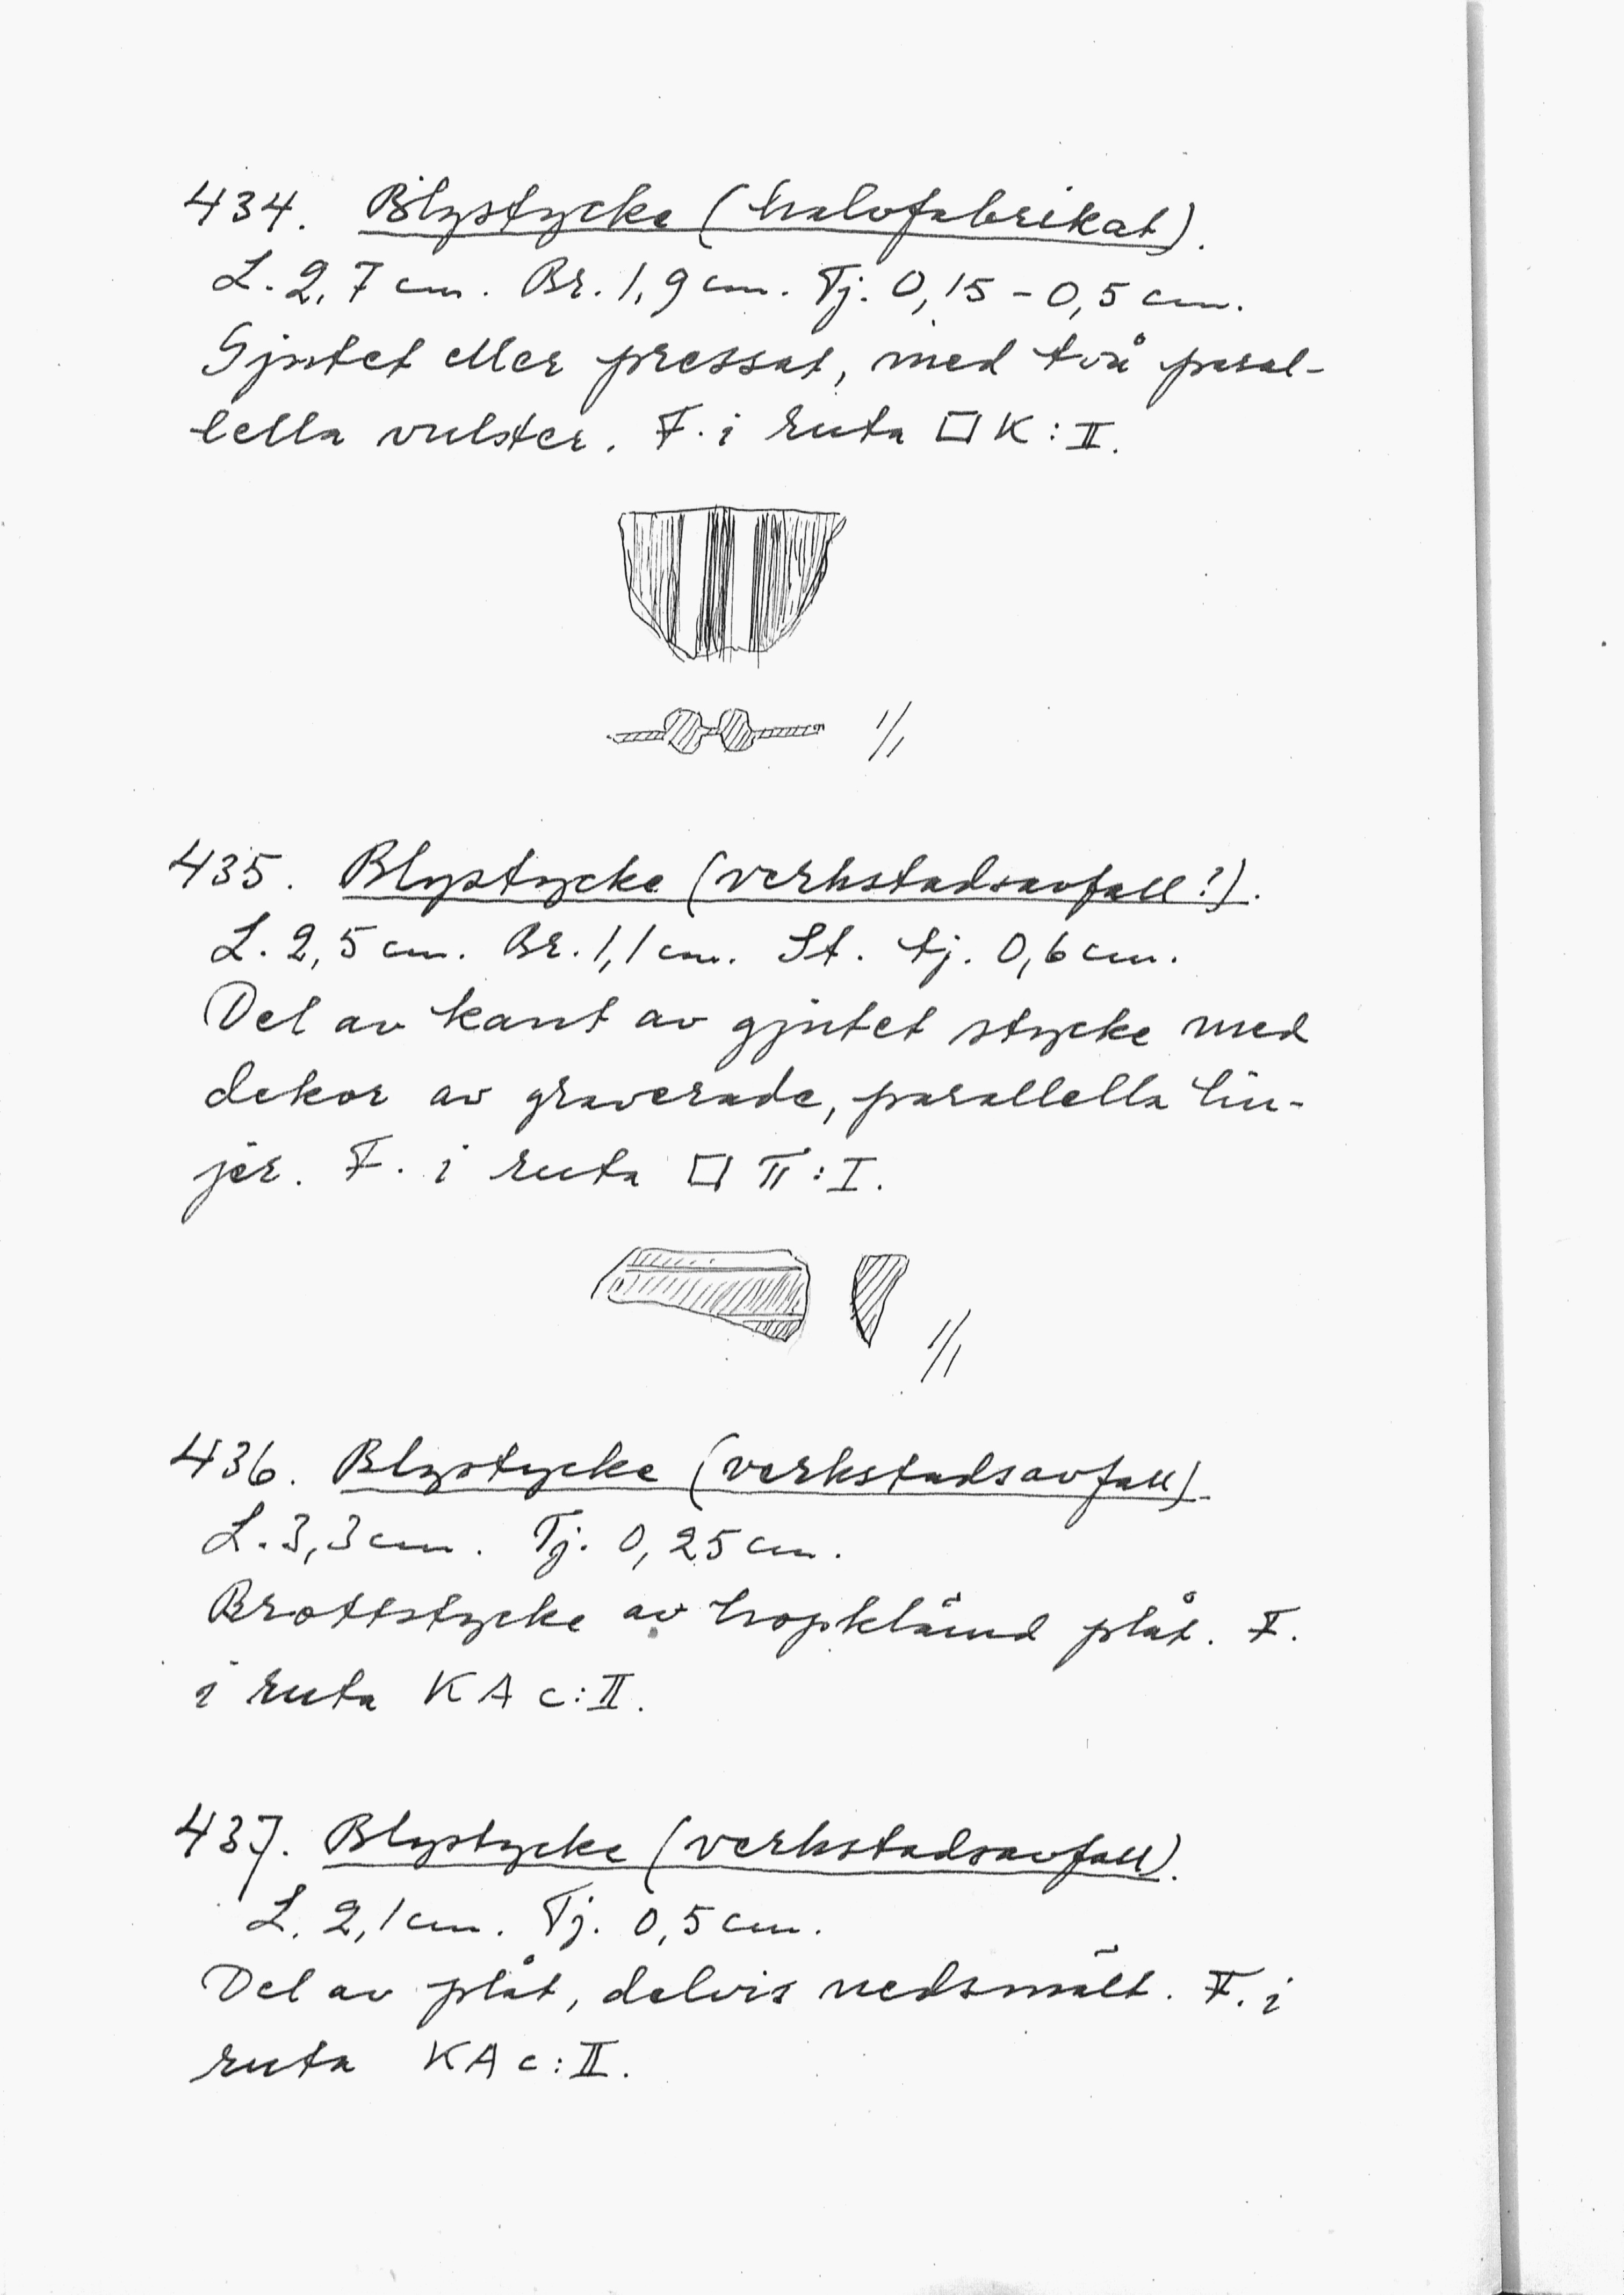 434. Blystycke (halvfabrikat).
L. 2,7 cm. Br. 1,9 cm. Tj. 0,15 - 0,5 cm.
Gjutet eller pressat, med två paral-
lella vulster. F. i ruta □ K : II.
1/1
435. Blystycke (verkstadsavfall?).
L. 2,5 cm. Br. 1,1 cm. St. tj. 0,6 cm.
Del av kant av gjutet stycke med
dekor av graverade, parallella lin-
jer. F. i ruta □ II : I.
1/1
436. Blystycke (verkstadsavfall).
L. 3,3 cm. Tj. 0,25 cm.
Brottstycke av hopklämd plåt. F.
i ruta KA c : II.
437. Blystycke (verkstadsavfall).
L. 2,1 cm. Tj. 0,5 cm.
Del av plåt, delvis nedsmält. F. i
ruta KA c : II.